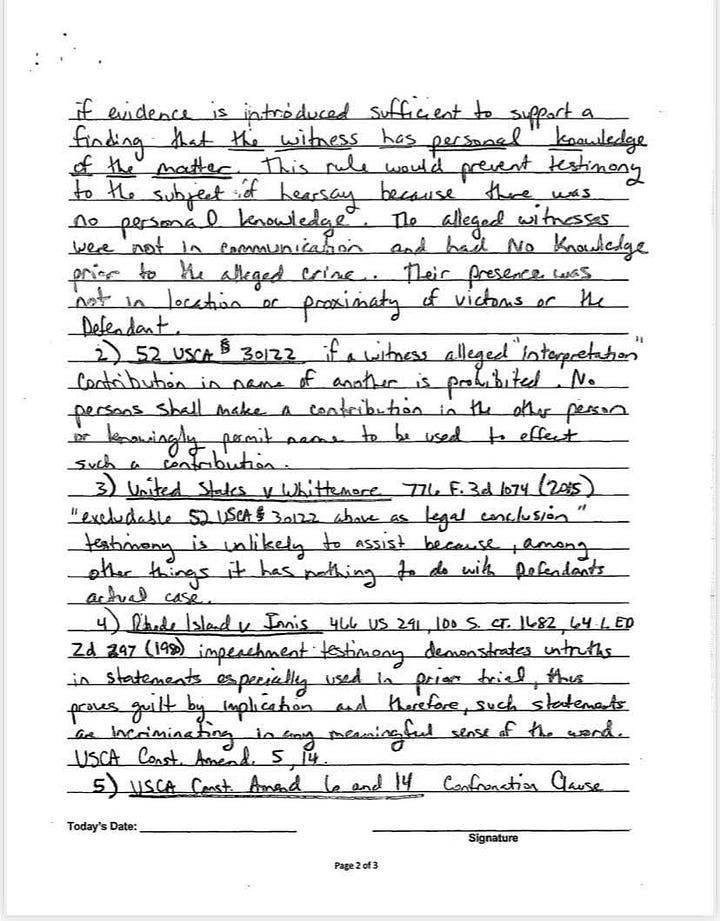 if evidence is introduced sufficient to support a
finding that the witness has personal knowledge
of the matter. This rule would prevent testimony
to the subject of hearsay because there was
no personal knowledge. The alleged witnesses
were not in communication and had No Knowledge
prior to the alleged crime. Their presence was
not in location or proximaty of victoms or the
Defendant.
2) 52 USCA § 30122 if a witness alleged "interpretation"
Contribution in name of another is prohibited. No
persons shall make a contribution in the other person
or knowingly permit name to be used to effect
such a contribution.
3) United States v Whittemore 776 F. 3d 1074 (2015)
"excludable 52 USCA § 30122 above as legal conclusion"
testimony is unlikely to assist because, among
other things it has nothing to do with Defendants
actual case.
4) Rhode Island v Innis 466 US 291, 100 S. CT. 1682, 64 L ED
2d 297 (1980) impeachment testimony demonstrates untruths
in statements especially used in prior trial, thus
proves guilt by implication and therefore, such statements
are incriminating in any meaningful sense of the word.
USCA Const. Amend. 5, 14.
5) USCA Const. Amend 6 and 14 Confronation Clause
Today's Date:
Signature
Page 2 of 3